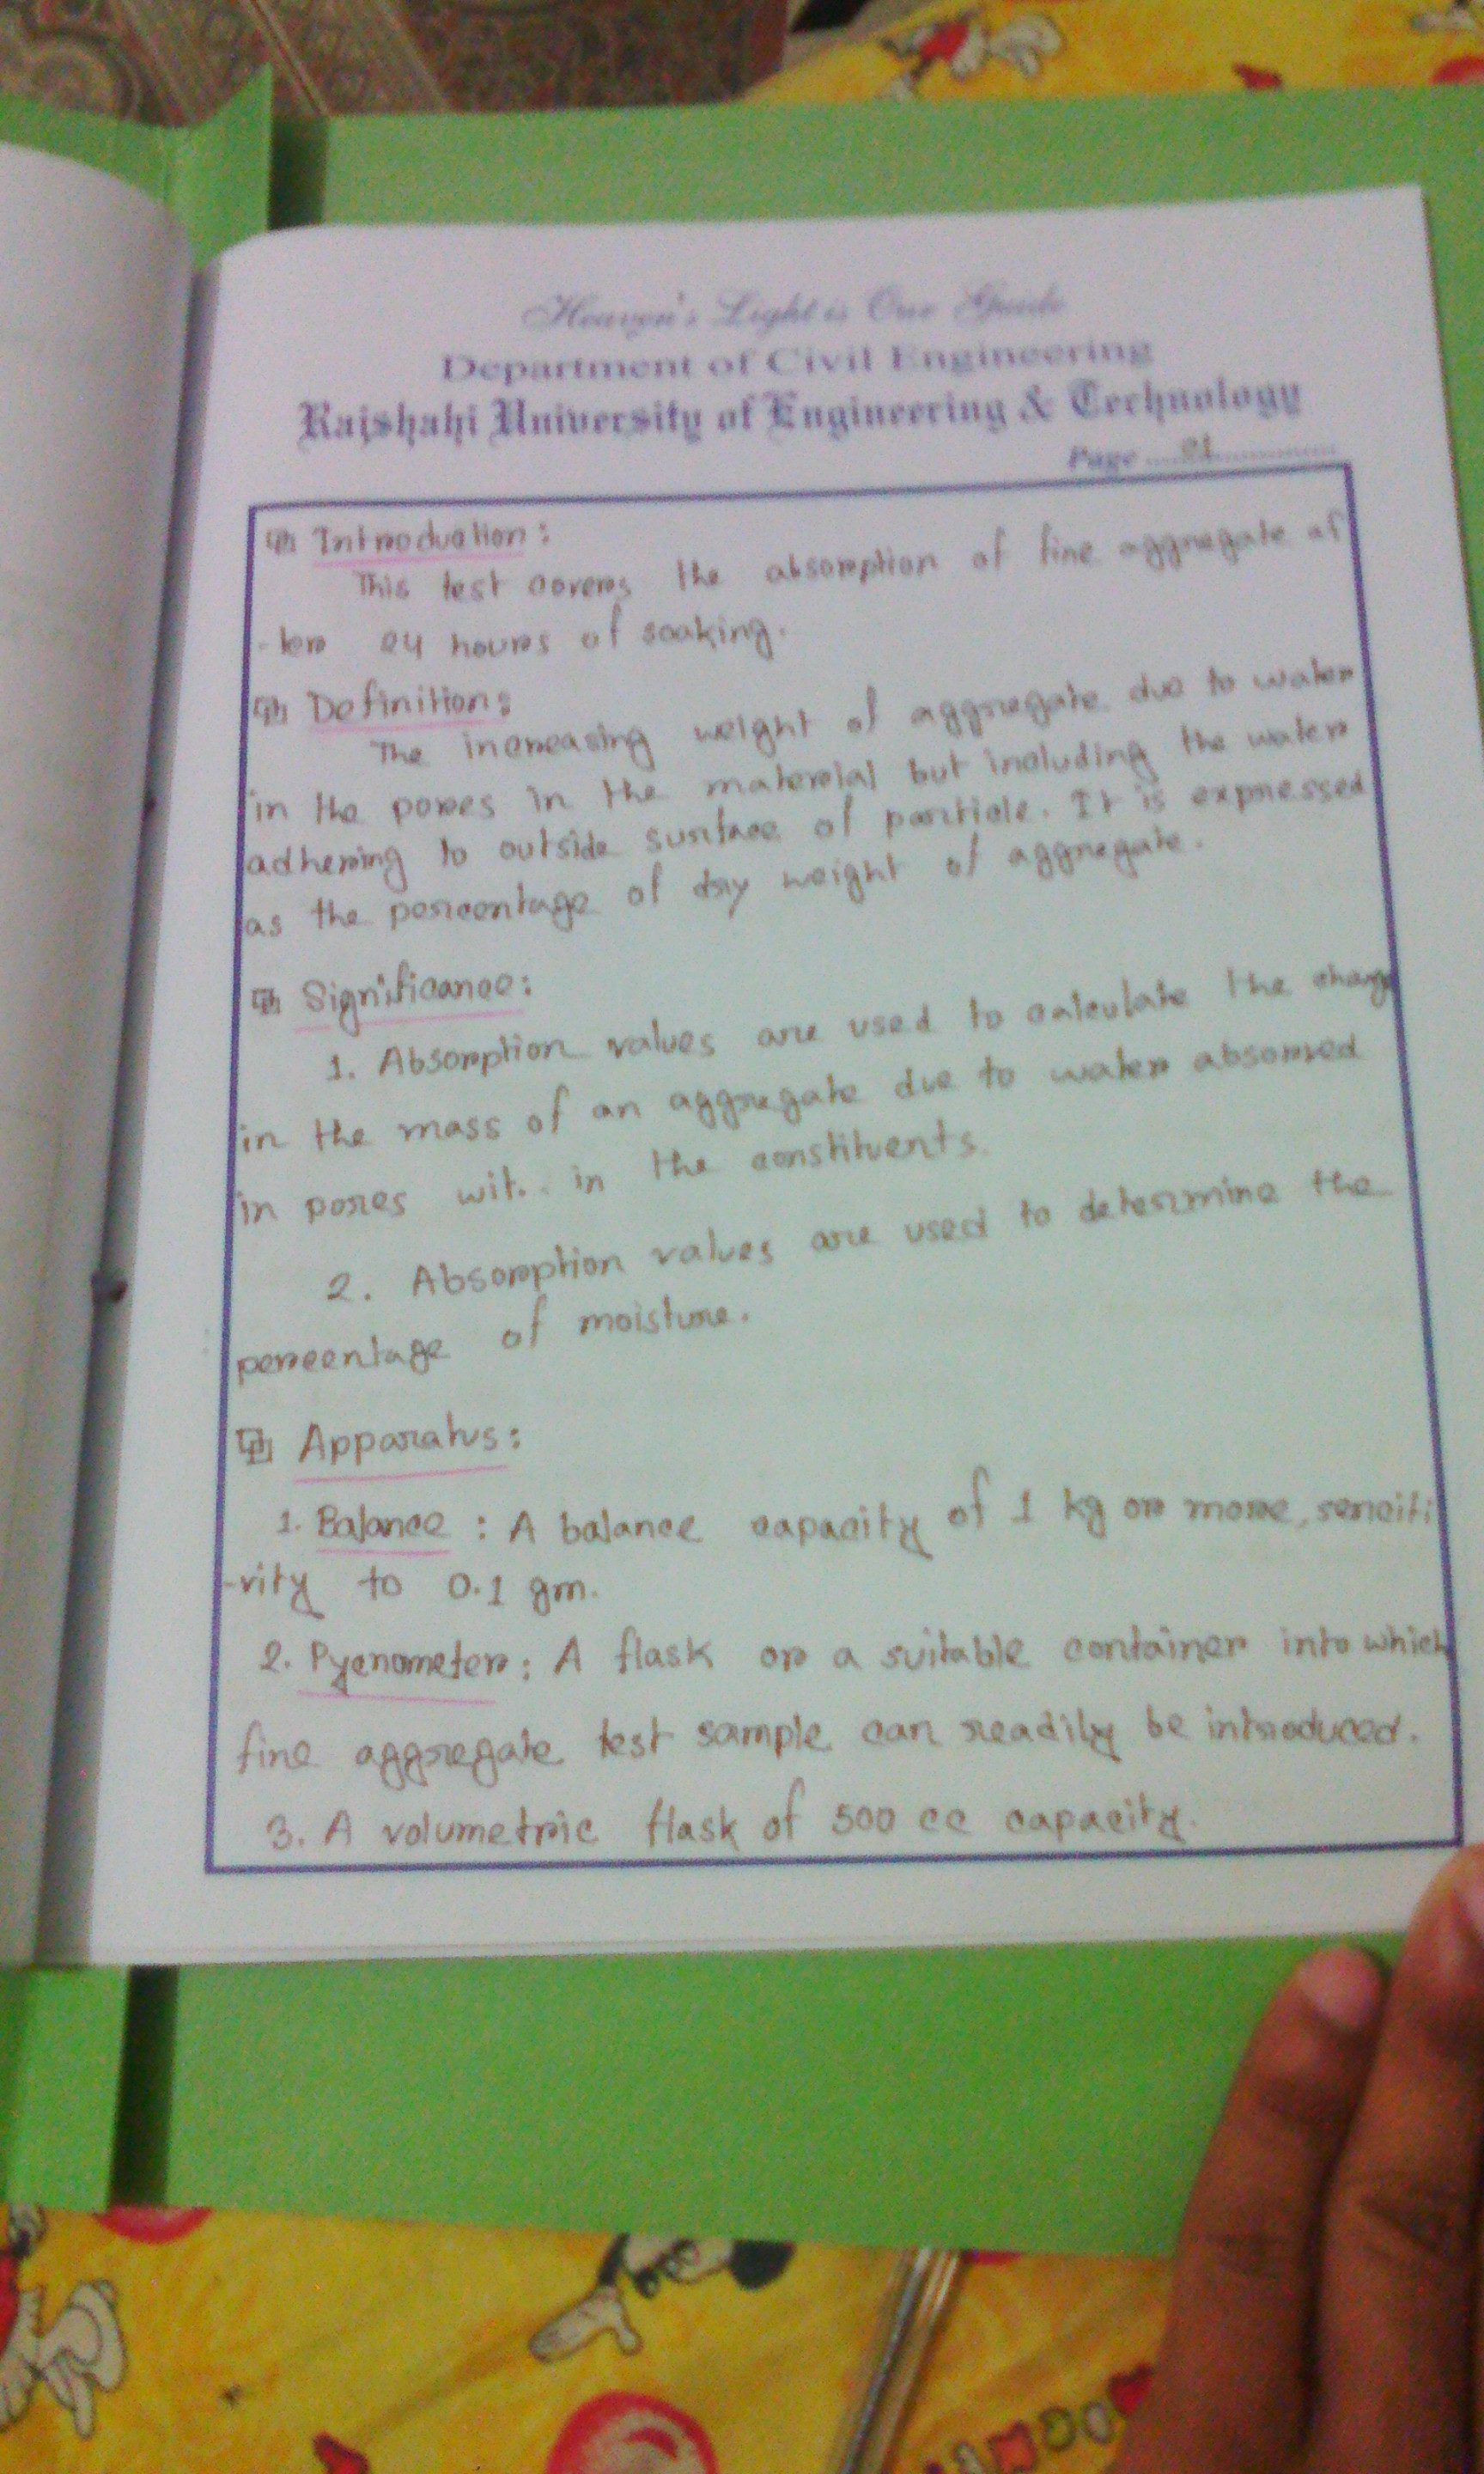 Heaven's Light is Our Guide
Department of Civil Engineering
Rajshahi University of Engineering & Technology
Page 01
Introduction:
This test covers the absorption of fine aggregate af
-ter 24 hours of soaking.
Definition:
The increasing weight of aggregate due to water
in the pores in the material but including the water
adhering to outside surface of particle. It is expressed
as the percentage of dry weight of aggregate.
Significance:
1. Absorption values are used to calculate the change
in the mass of an aggregate due to water absorved
in pores in the constituents.
2. Absorption values are used to determine the
percentage of moisture.
Apparatus:
1. Balance : A balance capacity of 1 kg or more, senciti
-vity to 0.1 gm.
2. Pycnometer: A flask or a suitable container into which
fine aggregate test sample can readily be introduced.
3. A volumetric flask of 500 cc capacity.